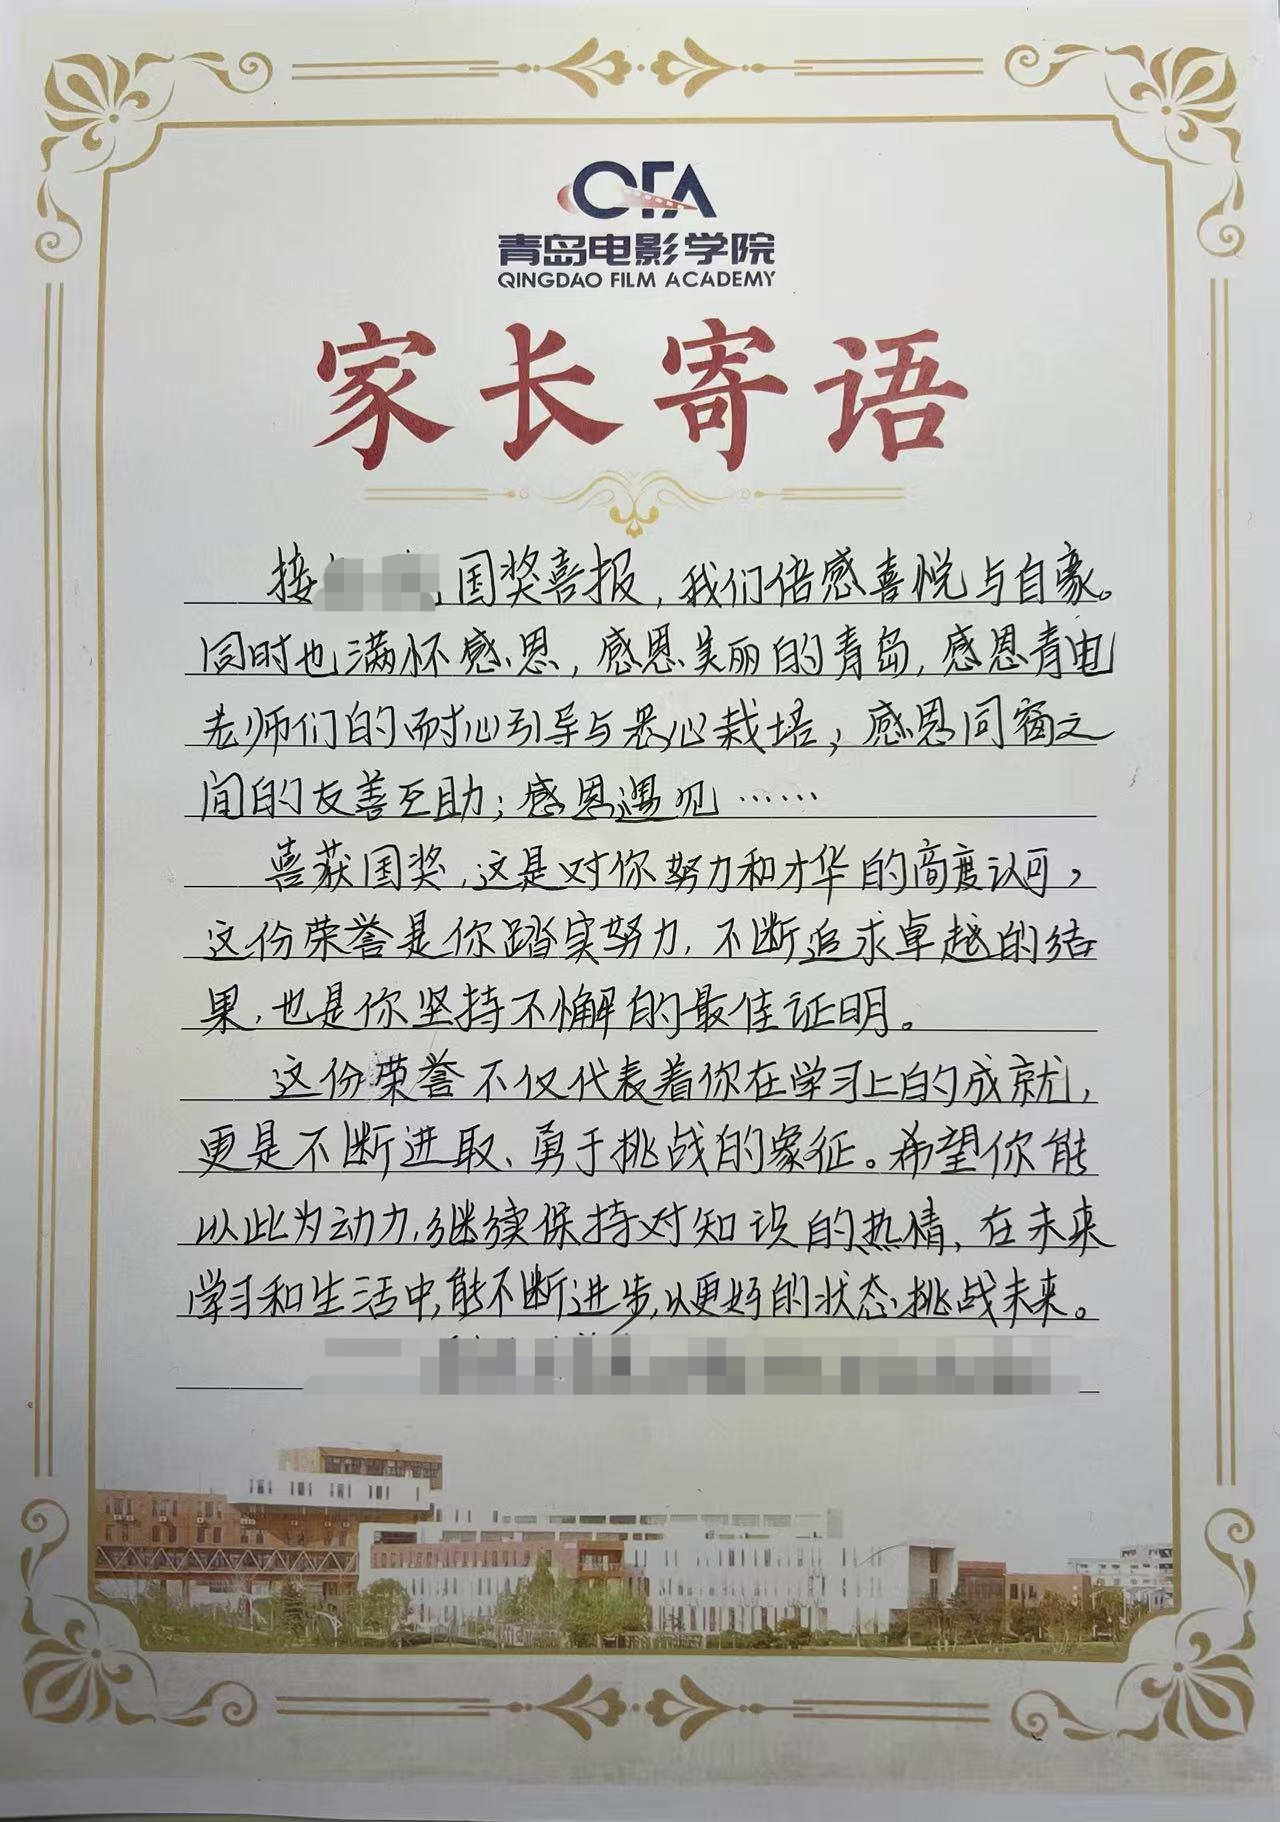 QFA
青岛电影学院
QINGDAO FILM ACADEMY
家长寄语
接 国奖喜报，我们倍感喜悦与自豪。
同时也满怀感恩，感恩美丽的青岛，感恩青电
老师们的耐心引导与悉心栽培；感恩同窗之
间的友善互助；感恩遇见……
喜获国奖，这是对你努力和才华的高度认可，
这份荣誉是你踏实努力，不断追求卓越的结
果，也是你坚持不懈的最佳证明。
这份荣誉不仅代表着你在学习上的成就，
更是不断进取、勇于挑战的象征。希望你能
以此为动力，继续保持对知识的热情，在未来
学习和生活中，能不断进步，以更好的状态挑战未来。